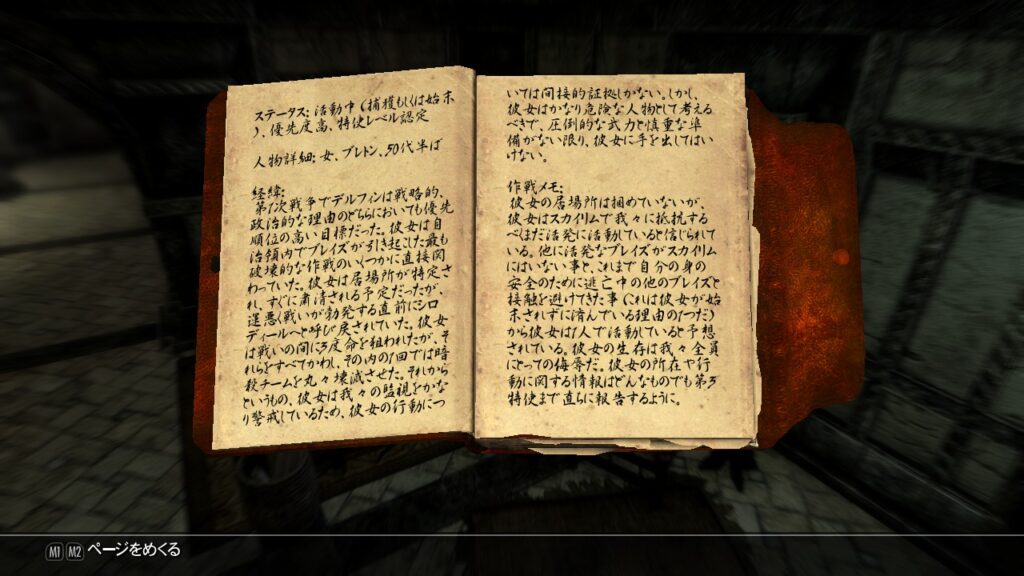 ステータス: 活動中 (捕獲もしくは始末
)、優先度高、特使レベル認定
人物詳細: 女、ブレトン、50代半ば
経緯:
第1次戦争でデルフィンは戦略的、
政治的な理由のどちらにおいても優先
順位の高い目標だった。彼女は自
治領内でブレイズが引き起こした最も
破壊的な作戦のいくつかに直接関
わっていた。彼女は居場所が特定さ
れ、すぐに粛清される予定だったが、
運悪く戦いが勃発する直前にシロ
ディールへと呼び戻されていた。彼女
は戦いの間に3度命を狙われたが、そ
れらをすべてかわし、その内の1回では暗
殺チームを丸々壊滅させた。それから
というもの、彼女は我々の監視をかな
り警戒しているため、彼女の行動につ
いては間接的証拠しかない。しかし、
彼女はかなり危険な人物として考える
べきで、圧倒的な武力と慎重な準
備がない限り、彼女に手を出してはい
けない。
作戦メモ:
彼女の居場所は掴めていないが、
彼女はスカイリムで我々に抵抗する
べくまだ活発に活動していると信じられて
いる。他に活発なブレイズがスカイリム
にはいない事と、これまで自分の身の
安全のために逃亡中の他のブレイズと
接触を避けてきた事(これは彼女が始
末されずに潜んでいる理由の1つだ)
から彼女は1人で活動していると予想
されている。彼女の生存は我々全員
にとっての侮辱だ。彼女の所在や行
動に関する情報はどんなものでも第3
特使まで直ちに報告するように。
M1 M2 ページをめくる